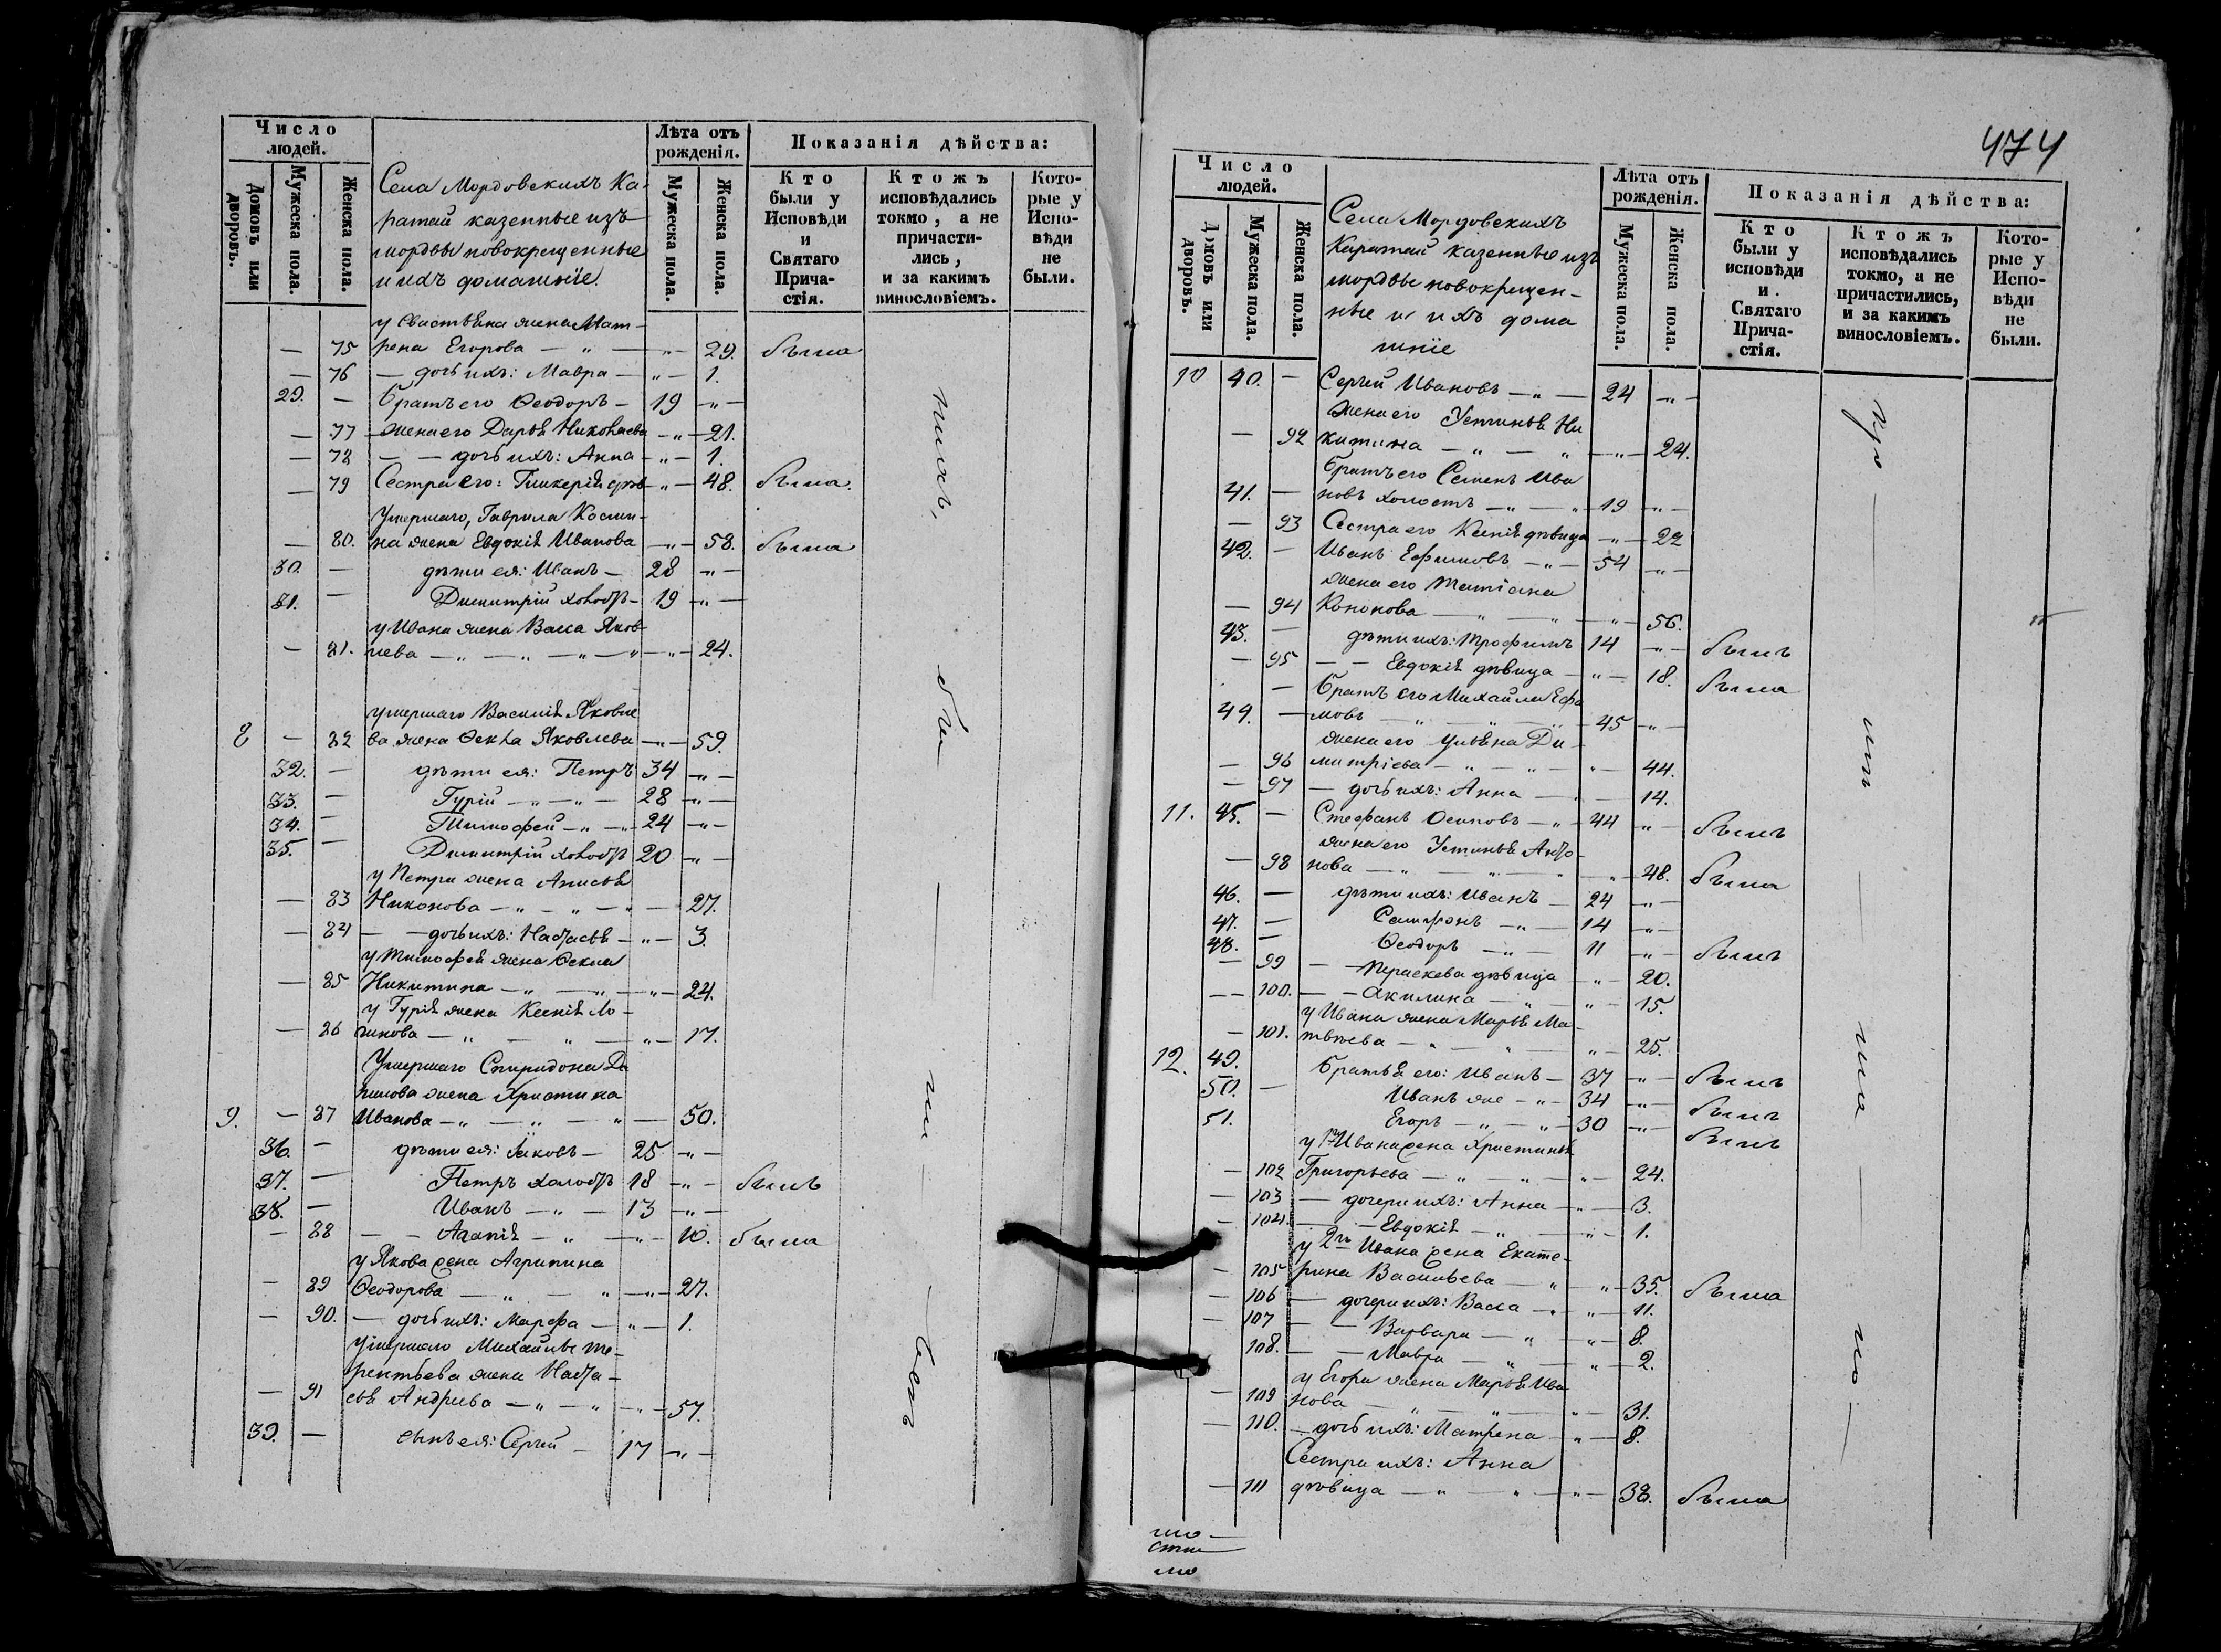 Число людей.
Лѣта отъ рожденія.
Показанія дѣйства:
Домовъ или дворовъ.
Мужеска пола.
Женска пола.
Села Мордовскихъ Ка-
ратай казенные изъ
мордвы новокрещенные
и ихъ домашніе.
Мужеска пола.
Женска пола.
Кто были у Исповѣди и Святаго Прича-стія.
Ктожъ исповѣдались токмо, а не причасти-лись, и за какимъ винословіемъ.
Кото-рые у Испо-вѣди не были.
жена Мат-
— 75 рена Егорова — „ — „ — 29. была
— 76 — дочь ихъ: Мавра — „ — 1.
29. — братъ его Ѳеодоръ — 19 — „ —
— 77 жена его Дарья Николаева — „ — 21.
— 78 — — дочь ихъ: Анна — „ — 1.
— 79 Сестра его: — „ — 48. была.
Умершаго, Гаврила Косми-
— 80. на жена Евдокія Иванова — „ — 58. была
30. — дѣти ея: Иванъ — 28 — „ —
31. — Димитрій холостъ — 19 — „ —
у Ивана жена Васса Яков-
— 81. лева — „ — „ — „ — „ — „ — 24.
умершаго Василія Яковле
8 — 82 ва жена Ѳекла Яковлева — „ — 59.
32. — дѣти ея: Петръ 34 — „ —
33. — Гурій — „ — „ — 28 — „ —
34. — Тимофей — „ — „ 24 — „ —
35. — Димитрій холостъ 20 — „ —
у Петра жена Анисья
— 83 Никонова — „ — „ — „ — 27.
— 84 — — дочь ихъ: Настасья — „ — 3.
у Тимофея жена Ѳекла
— 85 Никитина — „ — „ — „ — 24.
у Гурія жена Ксенія Ло-
— 86 гинова — „ — „ — „ — 17.
Умершаго Спиридона Да
нилова жена Христина
9. — 87 Иванова — „ — „ — „ — 50.
36. — дѣти ея: Яковъ — 25 — „ —
37. — Петръ холостъ 18 — „ — былъ
38. — Иванъ — „ — 13 — „ —
— 88 — — Агапія — „ — „ — 10. была
у Якова жена Агрипина
— 89 Ѳеодорова — „ — „ — „ — 27.
— 90. — дочь ихъ: Марфа — „ — 1.
умершаго Михайлы Те-
рентьева жена Наста-
— 91 сья Андрѣева — „ — „ — „ — 57.
39. — сынъ ея: Сергей — 17 — „ —
474
Число людей.
Лѣта отъ рожденія.
Показанія дѣйства:
Домовъ или дворовъ.
Мужеска пола.
Женска пола.
Села Мордовскихъ
Каратай казенные изъ
мордвы новокрещен-
ные и ихъ дома
шніе
Мужеска пола.
Женска пола.
Кто были у исповѣди и Святаго Прича-стія.
Ктожъ исповѣдались токмо, а не причастились, и за какимъ винословіемъ.
Кото-рые у Испо-вѣди не были.
10 40. — Сергей Ивановъ — „ — 24 — „ —
жена его Устинья Ни
— 92 китина — „ — „ — „ — 24.
братъ его Семенъ Ива
41. — новъ холостъ — „ — „ 19 — „ —
— 93 Сестра его Ксенія дѣвица — „ — 22
42. — Иванъ Ефимовъ — „ — 54 — „ —
жена его Татіана
— 94 Кононова — „ — „ — „ — 56.
43. — дѣти ихъ: Трофимъ 14 — „ — былъ
— 95 — — Евдокія дѣвица — „ — 18. была
— братъ его Михайла Ефи
44. — мовъ — „ — „ — 45 — „ —
жена его Ульяна Ди-
— 96 митріева — „ — „ — „ — 44.
— 97 — дочь ихъ: Анна — „ — 14.
11. 45. — Стефанъ Осиповъ — „ — 44 — „ — былъ
жена его Устинья Анто-
— 98 нова — „ — „ — „ — 48. была
46. — дѣти ихъ: Иванъ — 24 — „ —
47. — Сампсонъ — „ — 14 — „ —
48. — Ѳеодоръ — „ — 11 — „ — былъ
— 99 — — Параскева дѣвица — „ — 20.
— — 100. — — Акилина — „ — „ — 15.
у Ивана жена Марья Ма-
— 101. твѣева — „ — „ — „ — 25.
12. 49. Братья его: Иванъ — 37 — „ — былъ
50. — Иванъ же — „ — 34 — „ — былъ
51. Егоръ — „ — „ — 30 — „ — былъ
у 1го Ивана жена Христинья
— 102 Григорьева — „ — „ — „ — 24.
— 103 — дочери ихъ: Анна — „ — 3.
— 104. — — Евдокія — „ — „ — 1.
у 2го Ивана жена Екате-
— 105 рина Васильева — „ — „ — 35. была
— 106 — дочери ихъ: Васса — „ — „ — 11.
— 107 — — Варвара — „ — „ — 8.
108. — — Мавра — „ — „ — 2.
у Егора жена Марья Ива
— 109 нова — „ — „ — „ — 31.
— 110. — дочь ихъ: Матрена — „ — 8.
Сестра ихъ: Анна
— 111 дѣвица — „ — „ — „ — 38. была